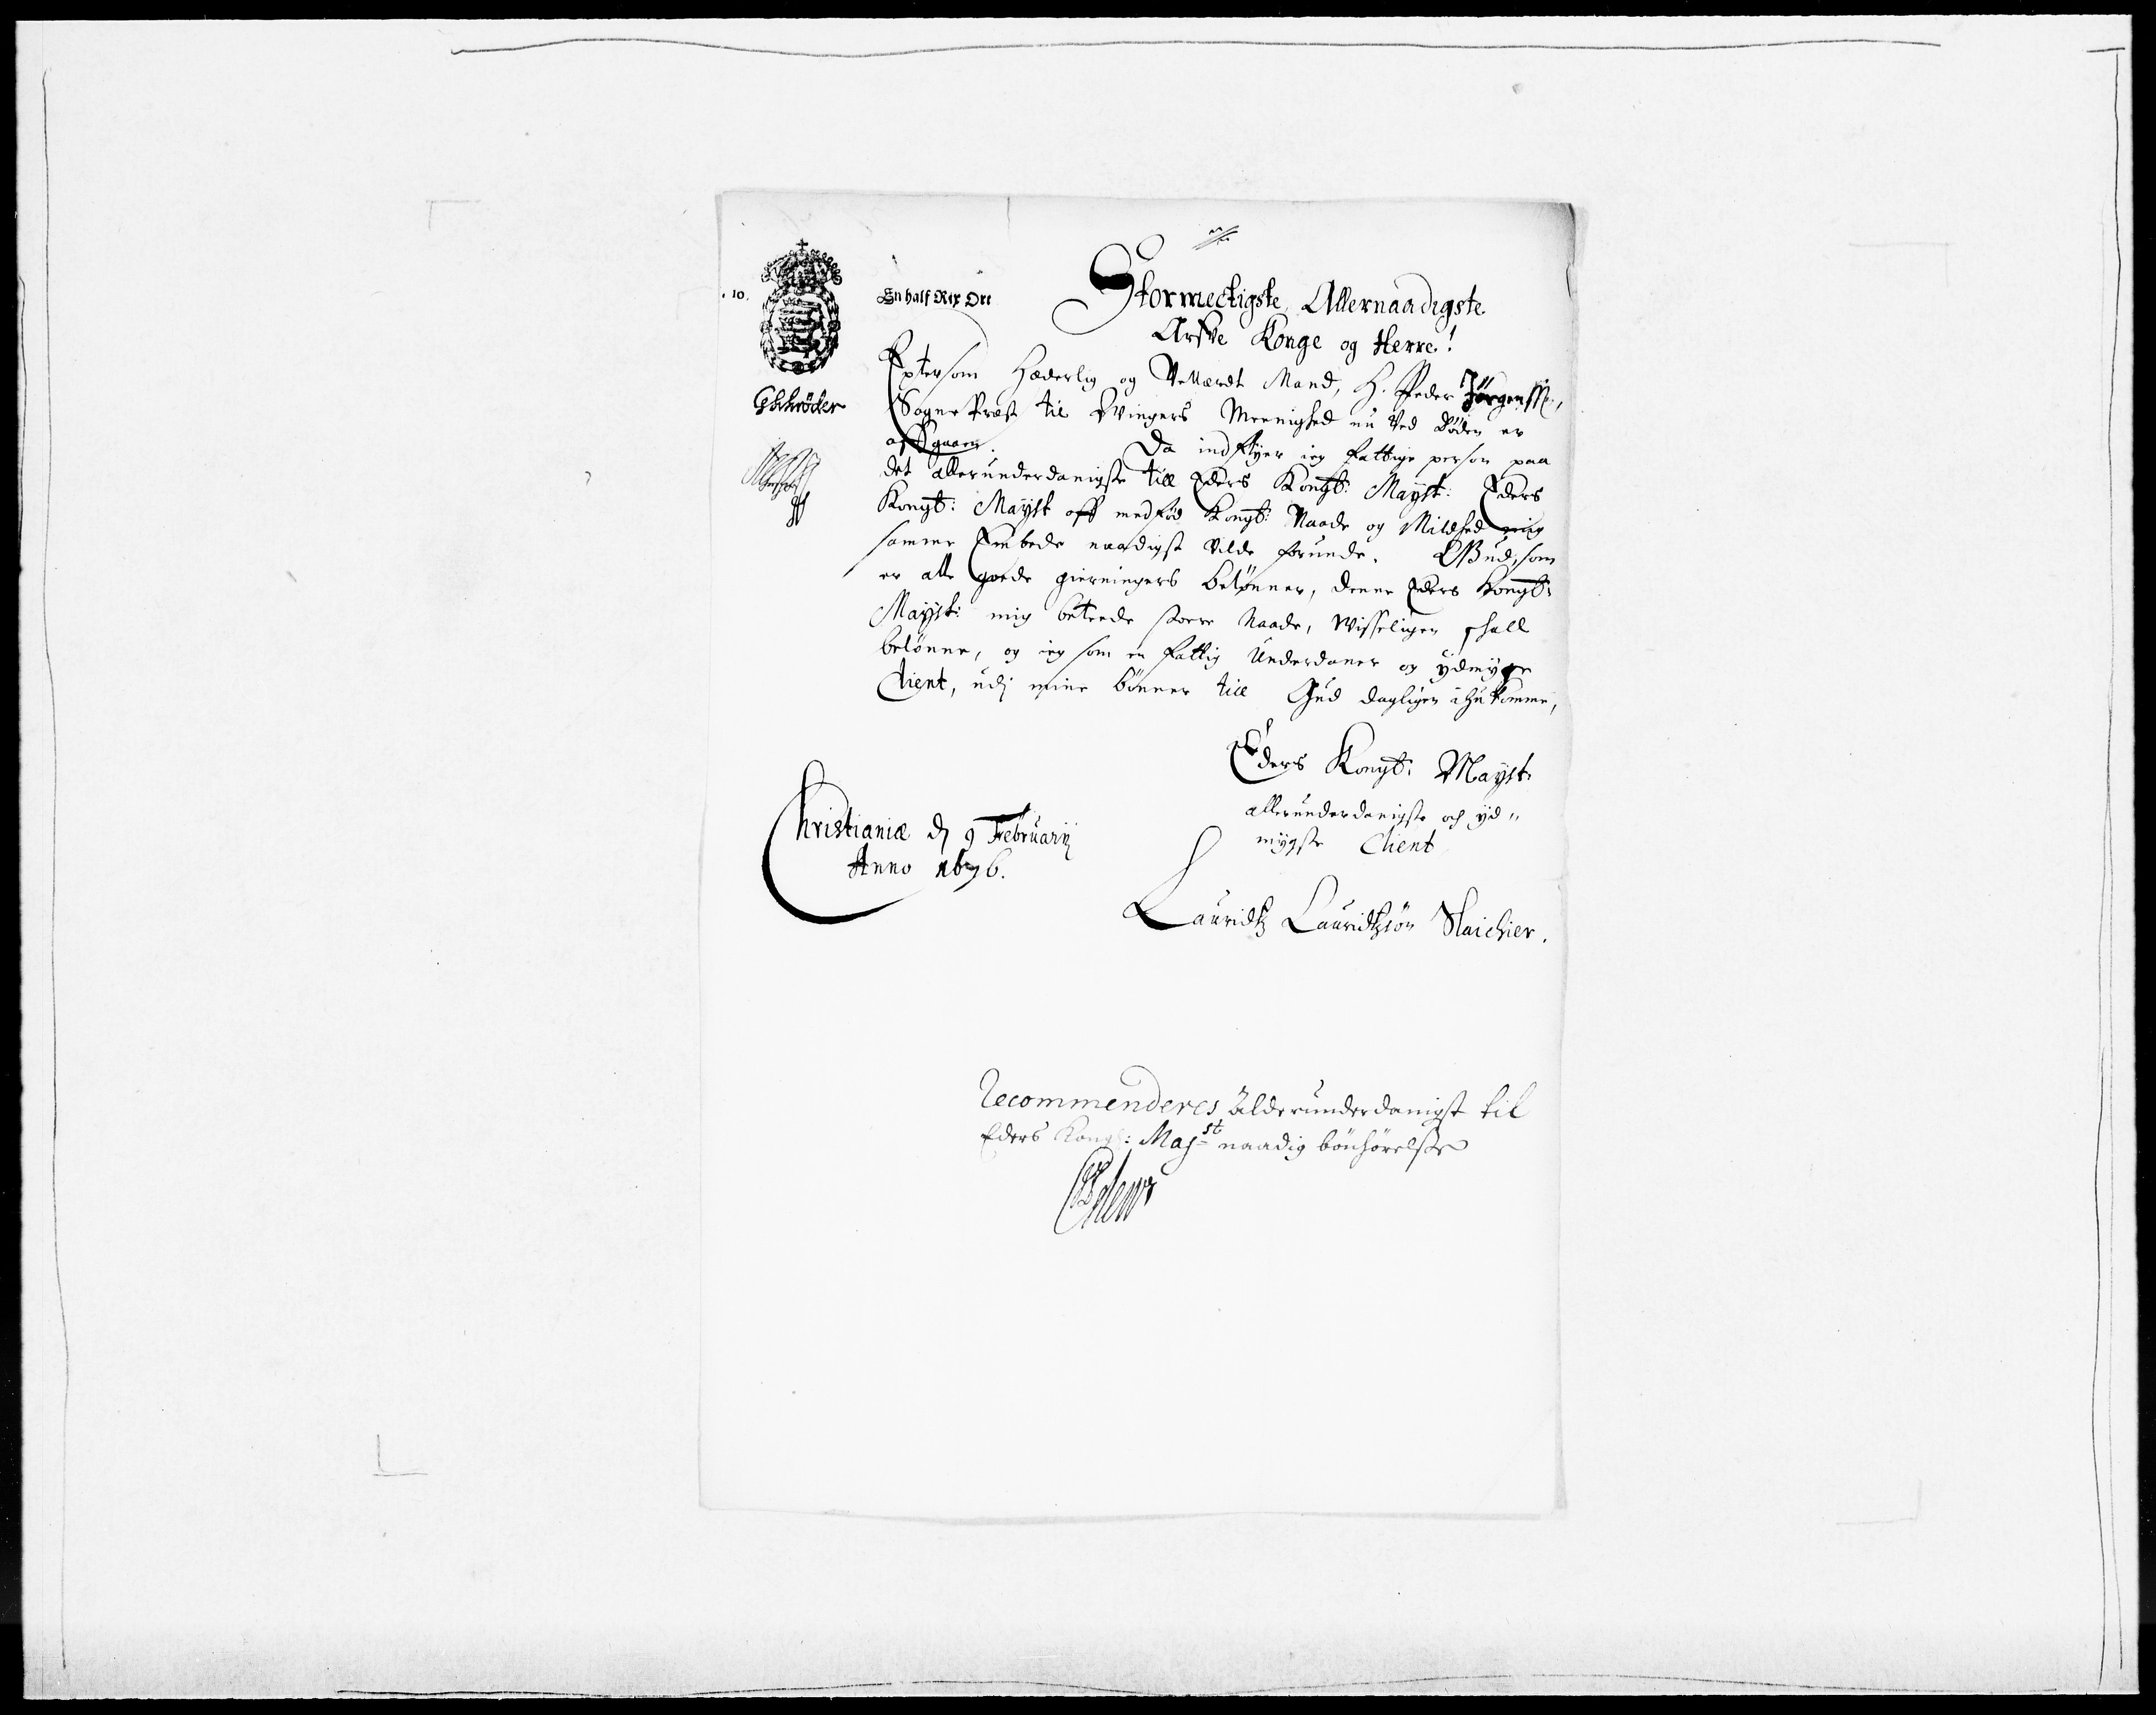 . 10.
En half Rix Ort
Stormectigste Allernaadigste
Arfve Konge og Herre!
GSchrôder
Eptersom Hæderlig og Vellærdt Mand, H. Peder Jörgenss:,
Sogne Præst til Wingers Meenighed nu Ved Döden er
affgaaen. Da indflyer ieg fattige person paa
det allerunderdanigste till Eders Kongt: Mayst: Eders
Kongt: Mayst off medfød Kongt: Naade og Mildhed mig
samme Embede naadigst vilde forunde. Gud, som
er alle goede gierningers belønner, denne Eders Kongt:
Mayst: mig beteede stoere Naade, Wisseligen shall
belönne, og ieg som en fattig Underdaner og ydmyge
Client, udj mine bönner till Gud dagligen ihukomme,
Eders Kongt: Mayst:
allerunderdanigste och yd"
mygste Client
Christianiæ dj 9 Februarij
Anno 1676.
Lauridtz Lauridtzsön
Recommenderes alderunderdanigst til
Eders Kongl: Majst naadig bönhörelse